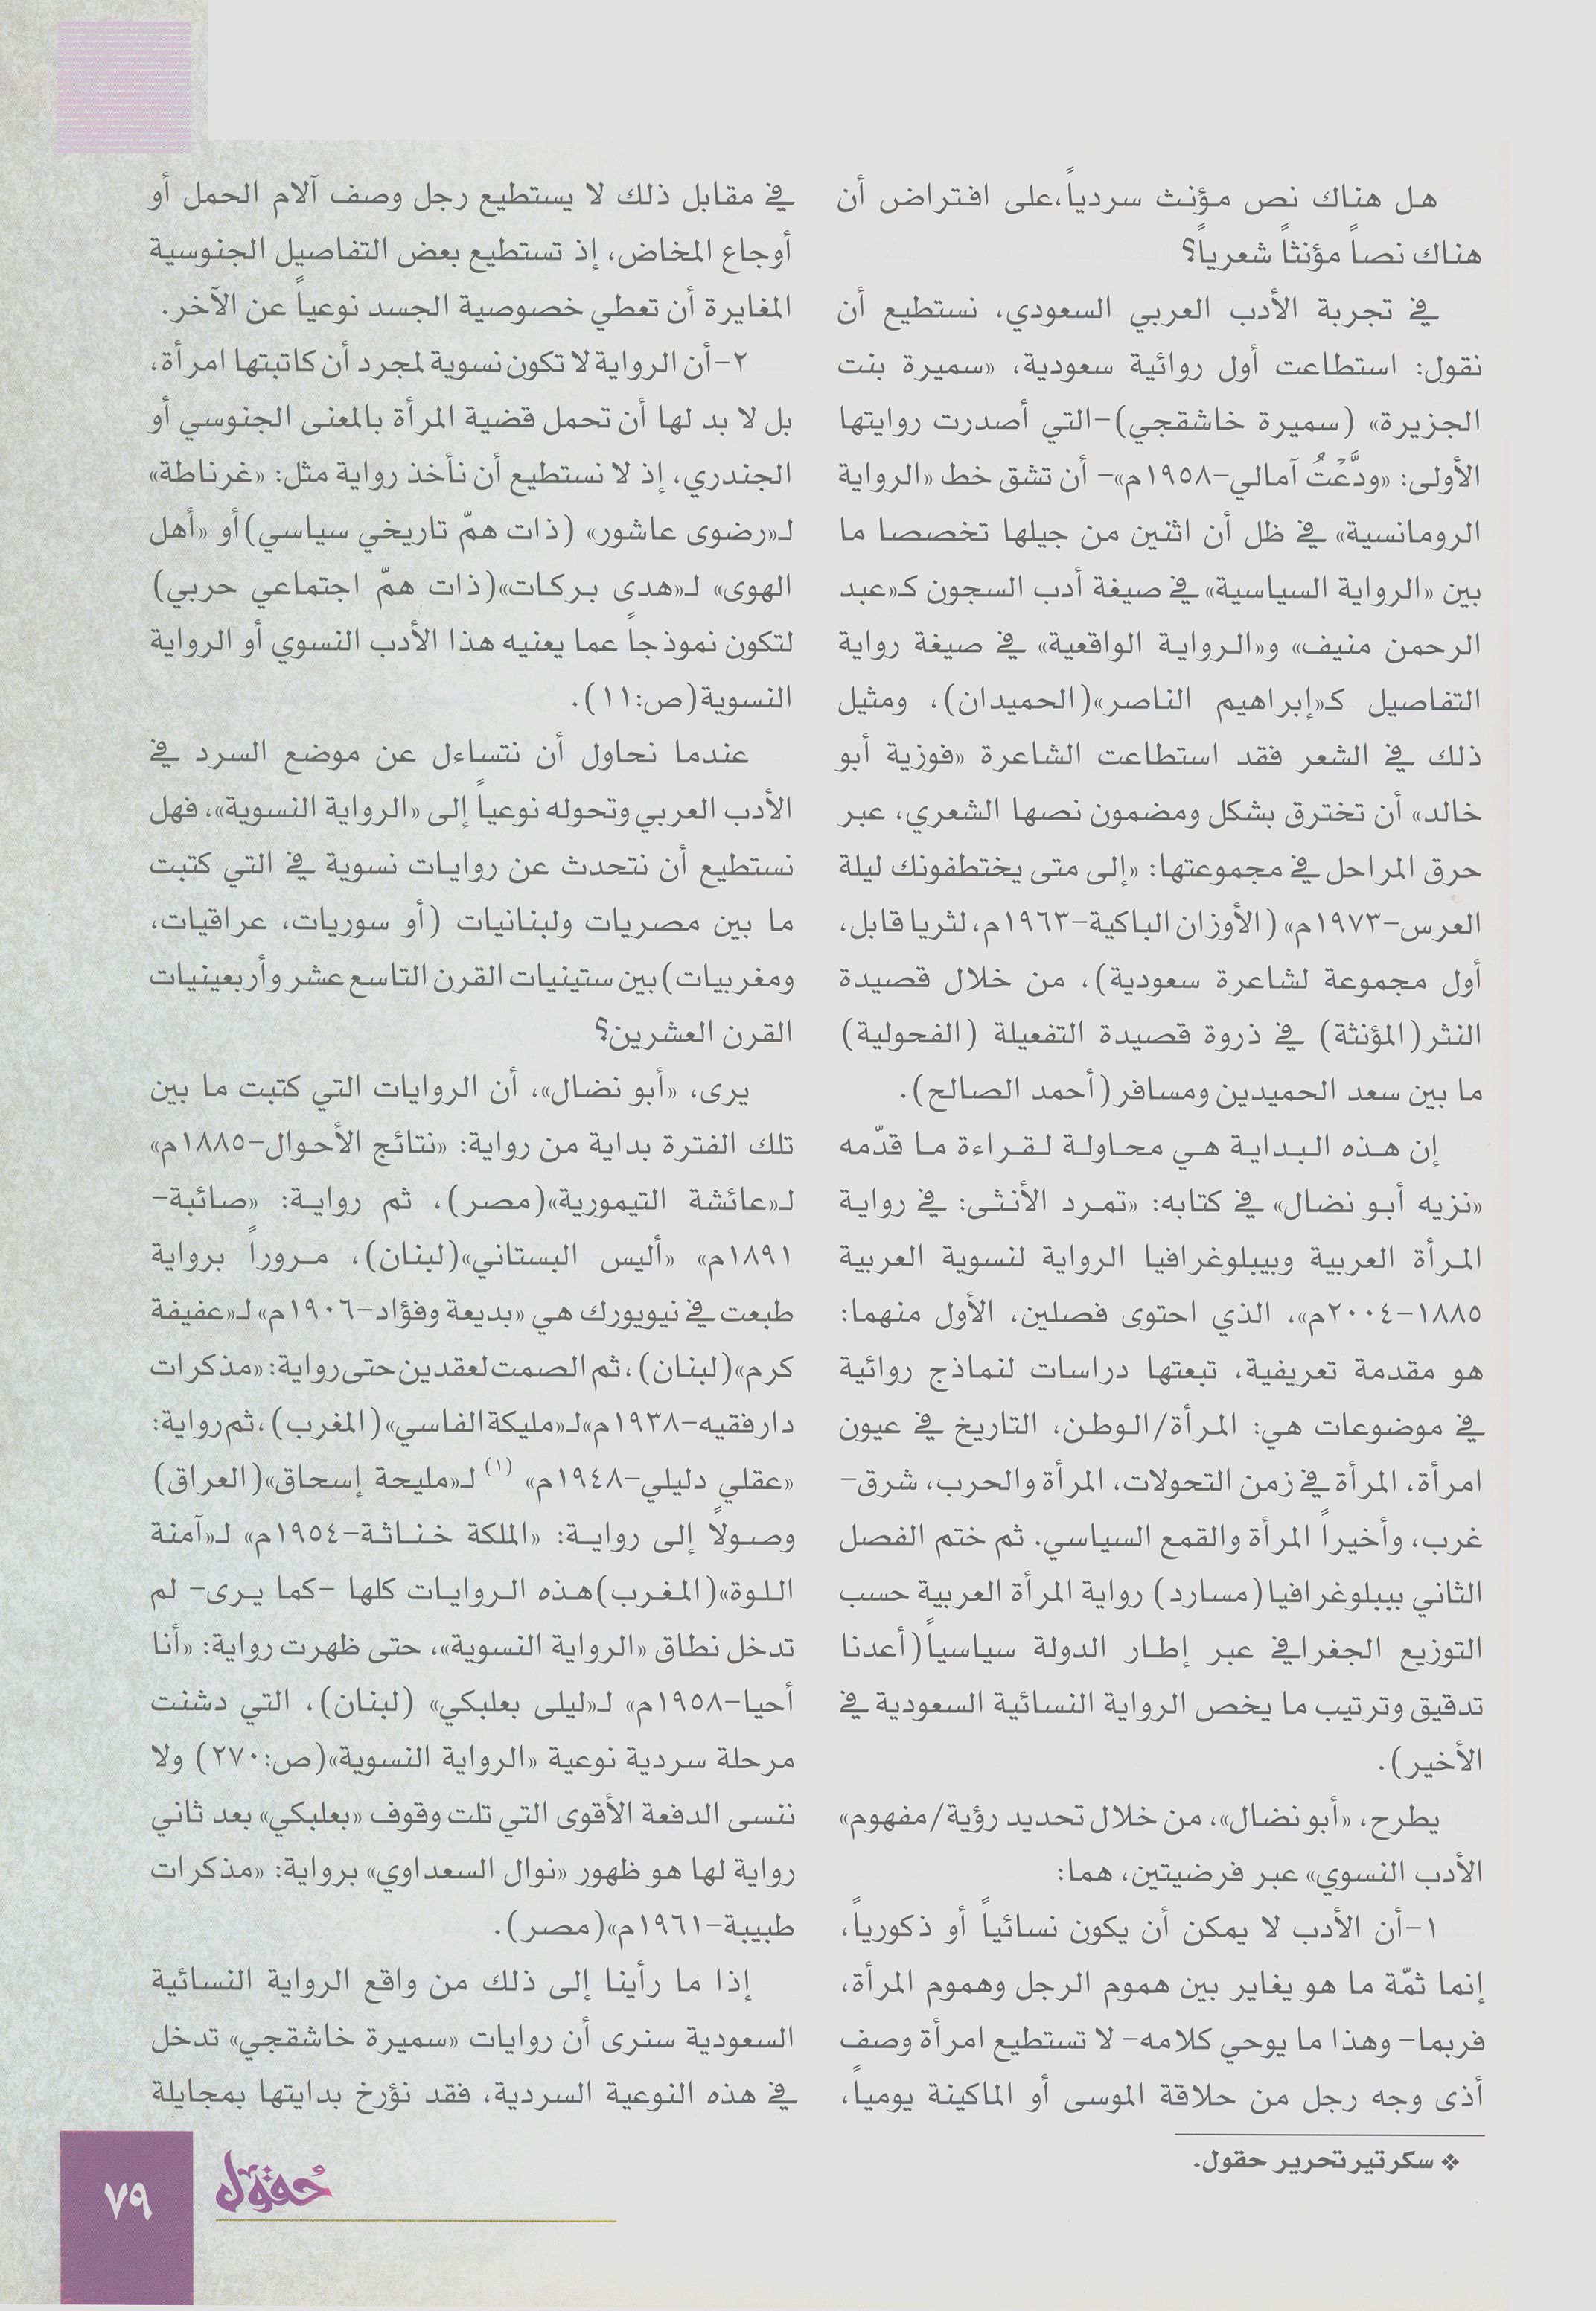 هل هناك نص مؤنث سردياً،على افتراض أن
هناك نصاً مؤنثاً شعرياً؟
في تجربة الأدب العربي السعودي، نستطيع أن
نقول: استطاعت أول روائية سعودية، «سميرة بنت
الجزيرة» (سميرة خاشقجي)-التي أصدرت روايتها
الأولى: «ودَّعْتُ آمالي-١٩٥٨م»- أن تشق خط «الرواية
الرومانسية» في ظل أن اثنين من جيلها تخصصا ما
بين «الرواية السياسية» في صيغة أدب السجون كـ«عبد
الرحمن منيف» و«الرواية الواقعية» في صيغة رواية
التفاصيل كـ«إبراهيم الناصر»(الحميدان)، ومثيل
ذلك في الشعر فقد استطاعت الشاعرة «فوزية أبو
خالد» أن تخترق بشكل ومضمون نصها الشعري، عبر
حرق المراحل في مجموعتها: «إلى متى يختطفونك ليلة
العرس-١٩٧٣م» (الأوزان الباكية-١٩٦٣م، لثريا قابل،
أول مجموعة لشاعرة سعودية)، من خلال قصيدة
النثر(المؤنثة) في ذروة قصيدة التفعيلة (الفحولية)
ما بين سعد الحميدين ومسافر(أحمد الصالح).
إن هذه البداية هي محاولة لقراءة ما قدّمه
«نزيه أبو نضال» في كتابه: «تمرد الأنثى: في رواية
المرأة العربية وبيبلوغرافيا الرواية لنسوية العربية
١٨٨٥-٢٠٠٤م»، الذي احتوى فصلين، الأول منهما:
هو مقدمة تعريفية، تبعتها دراسات لنماذج روائية
في موضوعات هي: المرأة/الوطن، التاريخ في عيون
امرأة، المرأة في زمن التحولات، المرأة والحرب، شرق-
غرب، وأخيراً المرأة والقمع السياسي. ثم ختم الفصل
الثاني ببيلوغرافيا(مسارد) رواية المرأة العربية حسب
التوزيع الجغرافي عبر إطار الدولة سياسياً(أعدنا
تدقيق وترتيب ما يخص الرواية النسائية السعودية في
الأخير).
يطرح، «أبو نضال»، من خلال تحديد رؤية/مفهوم»
الأدب النسوي» عبر فرضيتين، هما:
١-أن الأدب لا يمكن أن يكون نسائياً أو ذكورياً،
إنما ثمّة ما هو يغاير بين هموم الرجل وهموم المرأة،
فربما- وهذا ما يوحي كلامه- لا تستطيع امرأة وصف
أذى وجه رجل من حلاقة الموسى أو الماكينة يومياً،
❖ سكرتير تحرير حقول.
في مقابل ذلك لا يستطيع رجل وصف آلام الحمل أو
أوجاع المخاض، إذ تستطيع بعض التفاصيل الجنوسية
المغايرة أن تعطي خصوصية الجسد نوعياً عن الآخر.
٢-أن الرواية لا تكون نسوية لمجرد أن كاتبتها امرأة،
بل لا بد لها أن تحمل قضية المرأة بالمعنى الجنوسي أو
الجندري، إذ لا نستطيع أن نأخذ رواية مثل: «غرناطة»
لـ«رضوى عاشور» (ذات همّ تاريخي سياسي)أو «أهل
الهوى» لـ«هدى بركات»(ذات همّ اجتماعي حربي)
لتكون نموذجاً عما يعنيه هذا الأدب النسوي أو الرواية
النسوية(ص:١١).
عندما نحاول أن نتساءل عن موضع السرد في
الأدب العربي وتحوله نوعياً إلى «الرواية النسوية»، فهل
نستطيع أن نتحدث عن روايات نسوية في التي كتبت
ما بين مصريات ولبنانيات (أو سوريات، عراقيات،
ومغربيات)بين ستينيات القرن التاسع عشر وأربعينيات
القرن العشرين؟
يرى، «أبو نضال»، أن الروايات التي كتبت ما بين
تلك الفترة بداية من رواية: «نتائج الأحوال-١٨٨٥م»
لـ«عائشة التيمورية»(مصر)، ثم رواية: «صائبة-
١٨٩١م» «أليس البستاني»(لبنان)، مروراً برواية
طبعت في نيويورك هي «بديعة وفؤاد-١٩٠٦م» لـ«عفيفة
كرم»(لبنان)، ثم الصمت لعقدين حتى رواية: «مذكرات
دار فقيه-١٩٣٨م»لـ«مليكة الفاسي»(المغرب)، ثم رواية:
«عقلي دليلي-١٩٤٨م» (١) لـ«مليحة إسحاق»(العراق)
وصولاً إلى رواية: «الملكة خناثة-١٩٥٤م» لـ«آمنة
اللوة»(المغرب)هذه الروايات كلها -كما يرى- لم
تدخل نطاق «الرواية النسوية»، حتى ظهرت رواية: «أنا
أحيا-١٩٥٨م» لـ«ليلى بعلبكي» (لبنان)، التي دشنت
مرحلة سردية نوعية «الرواية النسوية»(ص:٢٧٠) ولا
ننسى الدفعة الأقوى التي تلت وقوف «بعلبكي» بعد ثاني
رواية لها هو ظهور «نوال السعداوي» برواية: «مذكرات
طبيبة-١٩٦١م»(مصر).
إذا ما رأينا إلى ذلك من واقع الرواية النسائية
السعودية سنرى أن روايات «سميرة خاشقجي» تدخل
في هذه النوعية السردية، فقد نؤرخ بدايتها بمجايلة
حُقول
٧٩